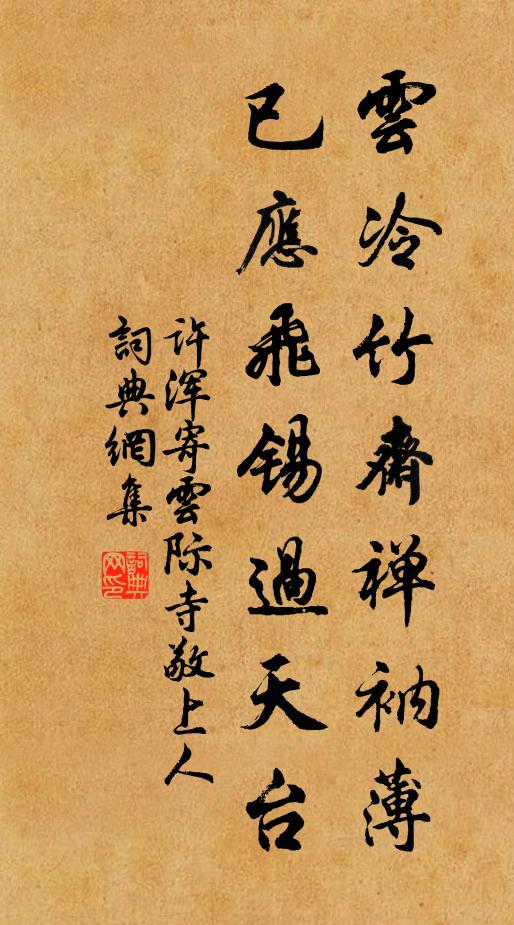 雲冷竹齋禅衲薄
已應飛錫過天台
许浑寄雲际寺敬上人
詞典網集
詞典網印